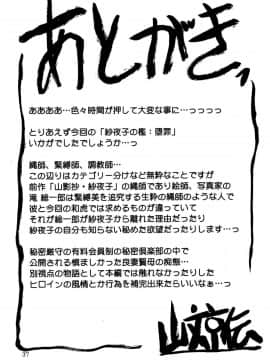 あとがき
ああああ…色々時間が押して大変な事に…っっっっ
とりあえず今回の「紗夜子の檻:堕罪」
いかがでしたでしょうか…っ
縄師、緊縛師、調教師…
この辺りはカテゴリー分けなど無粋なことですが
前作「山影抄・紗夜子」の縄師であり絵師、写真家の
滝 絵一郎は緊縛美を追究する生粋の縄師のような人で
彼と今回の和虎では求めるものが違っていて
それが絵一郎が紗夜子から離れた理由だったり
紗夜子の自分も知らない秘めた欲望だったりします…っ
秘密厳守の有料会員制の秘密倶楽部の中で
公開される慎ましかった良妻賢母の痴態…
別視点の物語として本編では触れなかったりした
ヒロインの風情とか行為を補完出来たらいいなぁ…っ
37